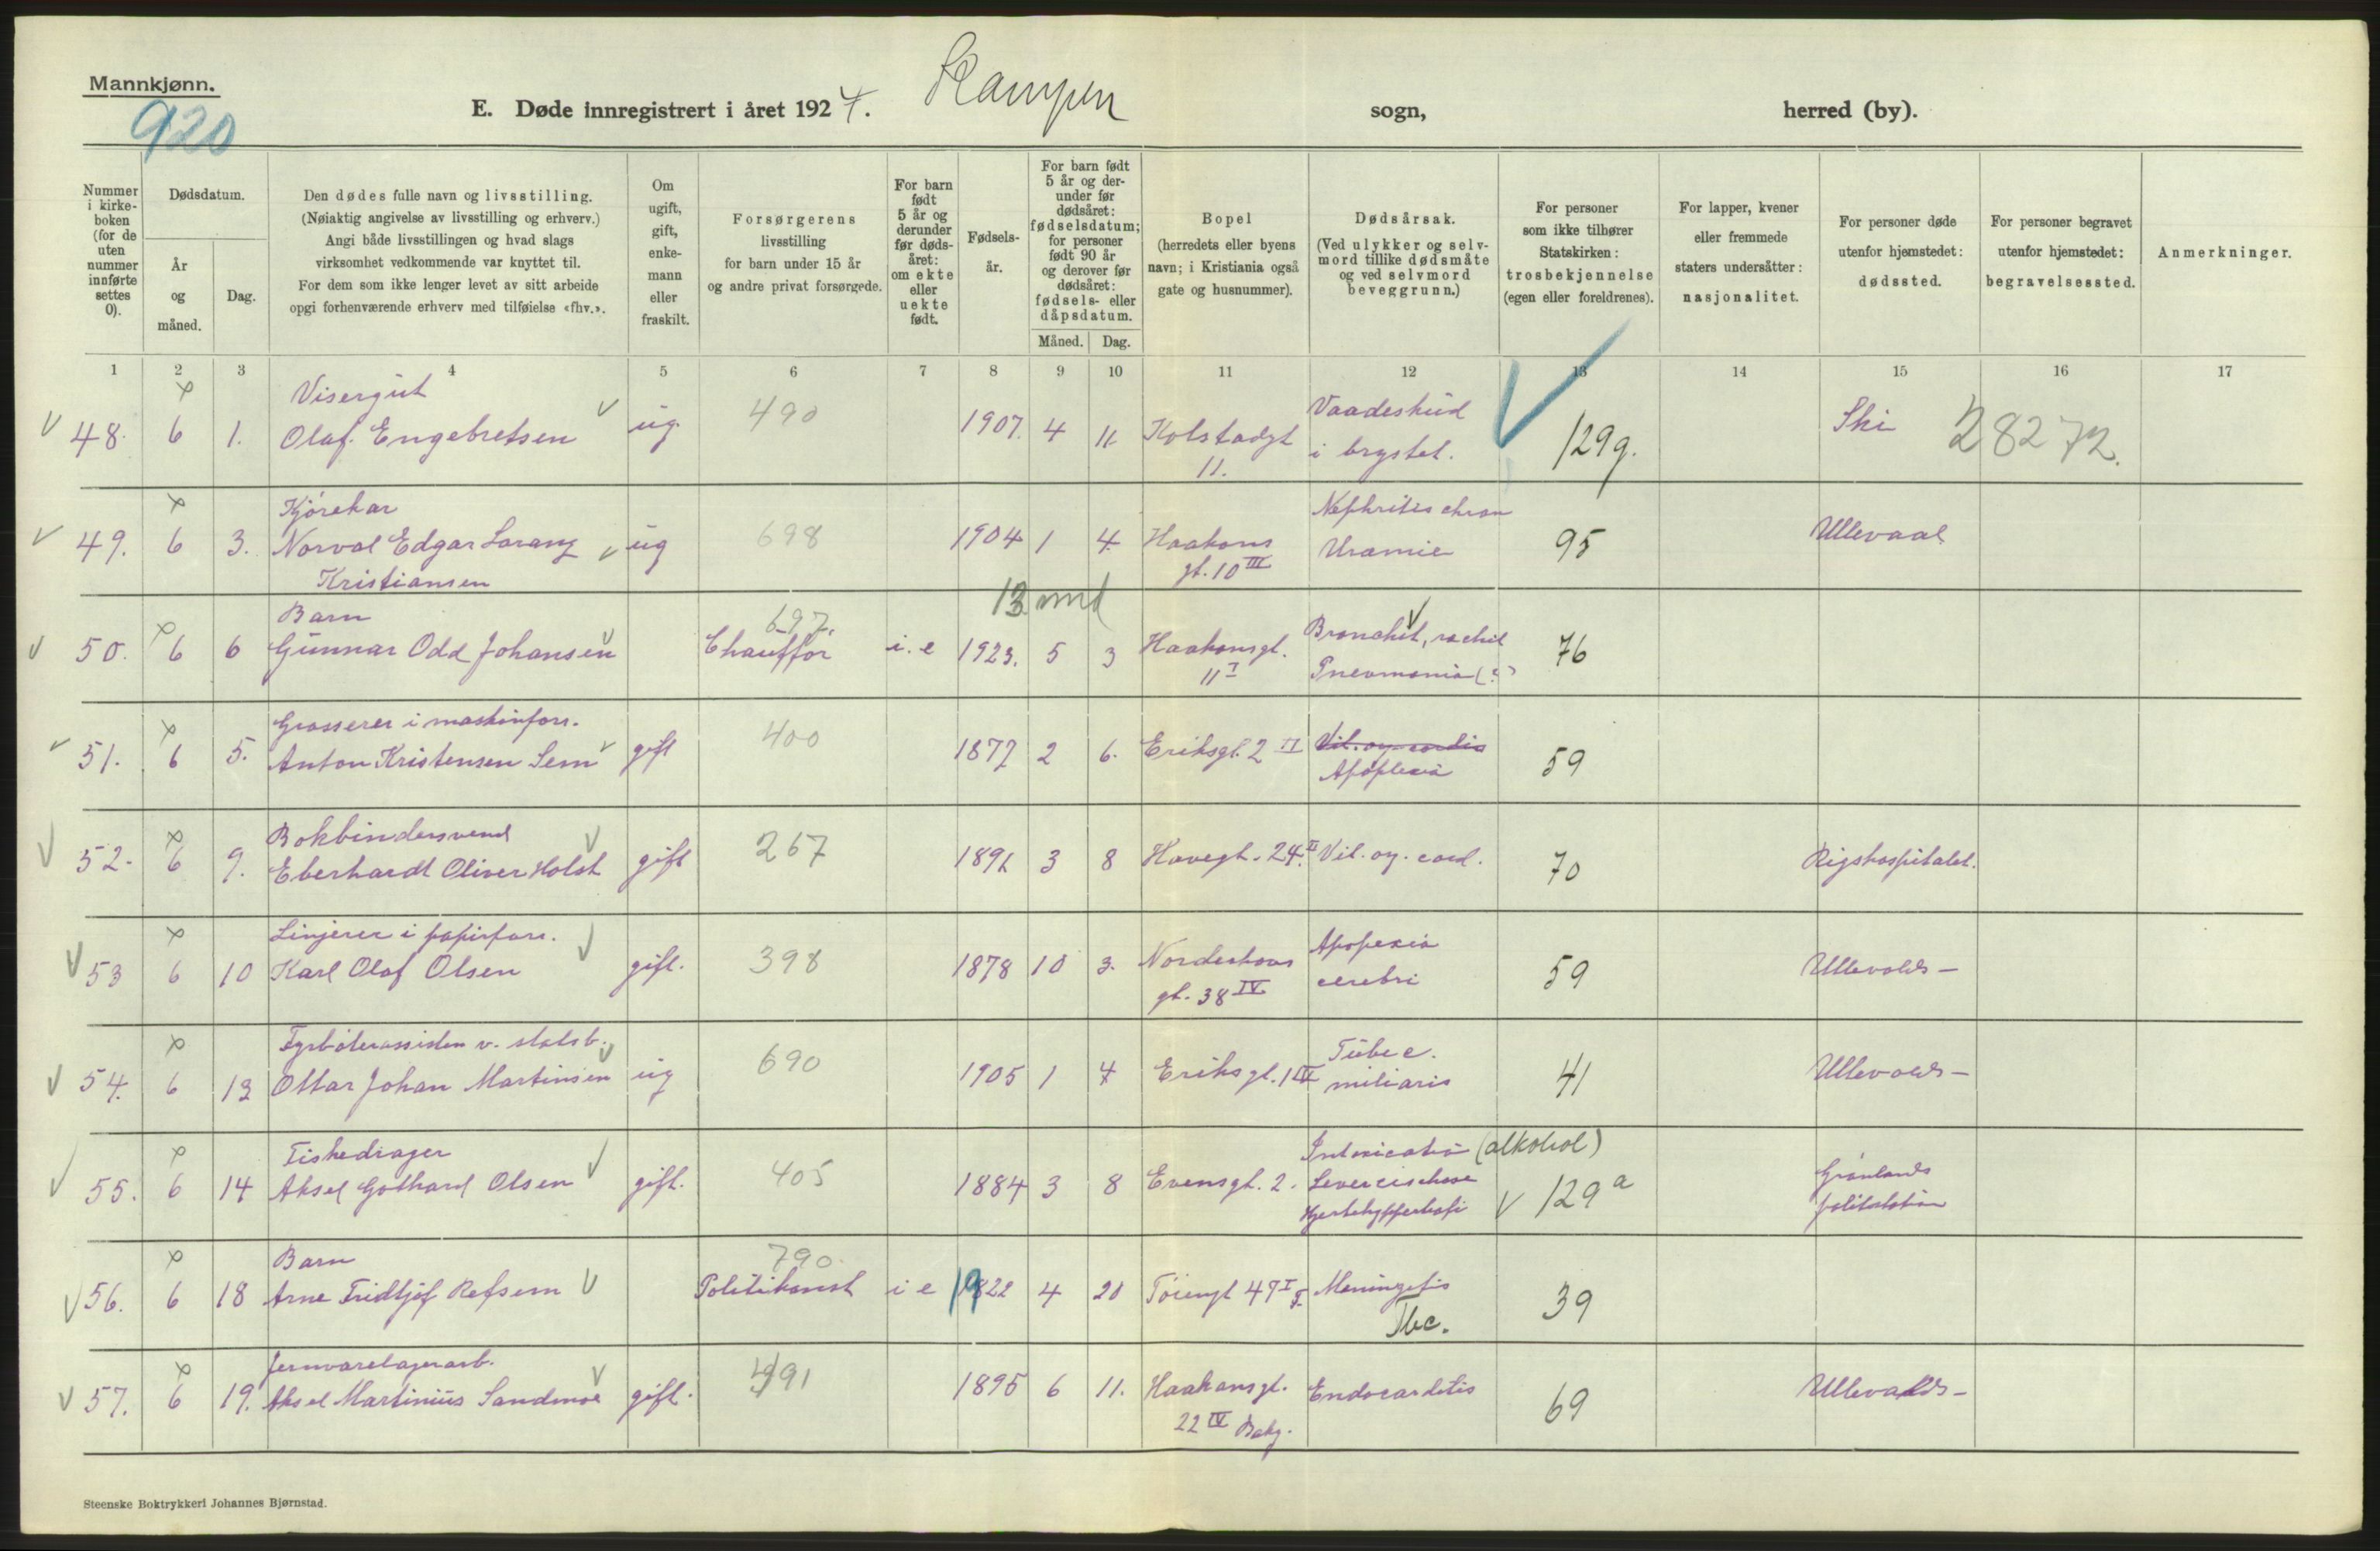 Mannkjønn.
920
E. Døde innregistrert i året 1924. Kampen sogn, herred (by).
Nummer i kirkeboken (for de uten nummer innførte settes 0).
Dødsdatum.
År og måned.
Dag.
Den dødes fulle navn og livsstilling.
(Nøiaktig angivelse av livsstilling og erhverv.)
Angi både livsstillingen og hvad slags
virksomhet vedkommende var knyttet til.
For dem som ikke lenger levet av sitt arbeide
opgi forhenværende erhverv med tilføielse «fhv.».
Om ugift, gift, enkemann eller fraskilt.
Forsørgerens
livsstilling
for barn under 15 år
og andre privat forsørgede.
For barn født 5 år og derunder før dødsåret: om ekte eller uekte født.
Fødselsår.
For barn født 5 år og derunder før dødsåret: fødselsdatum; for personer født 90 år og derover før dødsåret: fødsels- eller dåpsdatum.
Måned. Dag.
Bopel
(herredets eller byens
navn; i Kristiania også
gate og husnummer).
Dødsårsak.
(Ved ulykker og selvmord tillike dødsmåte og ved selvmord beveggrunn.)
For personer
som ikke tilhører
Statskirken:
trosbekjennelse
(egen eller foreldrenes).
For lapper, kvener
eller fremmede
staters undersåtter:
nasjonalitet.
For personer døde
utenfor hjemstedet:
dødssted.
For personer begravet
utenfor hjemstedet:
begravelsessted.
Anmerkninger.
1 2 3 4 5 6 7 8 9 10 11 12 13 14 15 16 17
Visergut
48. 6 1. Olaf Engebretsen ug. 490 1907. 4 11 Kolstadgt 11. Vaadeskud i brystet. 129g. Ski 28272.
Kjørekar
49. 6 3. Norval Edgar Lorang ug 698 1904 1 4 Haakons gt. 10 III Nephritis chron Uramie 95 Ullevaal
Kristiansen
Barn 697. 13 md
50. 6 6 Gunnar Odd Johansen Chauffør i. e 1923. 5 3 Haakonsgt. 11 I Bronchit, rachit Pneumonia (?) 76
Grosserer i maskinforr.
51. 6 5. Anton Kristensen Sem gift 400 1877 2 6. Eriksgt. 2 II Vit. og. cordis Apoplexia 59
Bokbindersvend
52. 6 9. Eberhardt Oliver Holst gift 267 1891 3 8 Havegt. 24. II Vit. og. cord. 70 Rigshospitalet.
Linjerer i papirforr.
53 6 10 Karl Olaf Olsen gift. 398 1878 10 3. Norderhovs gt. 38 IV Apopexia cerebri 59 Ullevolds-
Fyrbøterassisten v. statsb.
54. 6 13 Ottar Johan Martinsen ug 690 1905 1 4 Eriksgt. 1 IV Tuberc. miliaris 41 Ullevolds-
Fiskedrager
55. 6 14 Aksel Gothard Olsen gift. 405 1884 3 8 Evensgt. 2. Intoxicatio (alkohol) Levercirrhose Hjertehypperhofi 129 a Grønlands politistation
Barn 790.
56. 6 18 Arne Fridtjof Refsem Politikonst i e 1922 4 20 Tøiengt 47 I Meningitis Tbc. 39
Jernvarelagerarb.
57. 6 19. Aksel Martinius Sandmoe gift. 491 1895 6 11. Haakonsgt. 22 IV Bakg. Endocarditis 69 Ullevolds-
Steenske Boktrykkeri Johannes Bjørnstad.